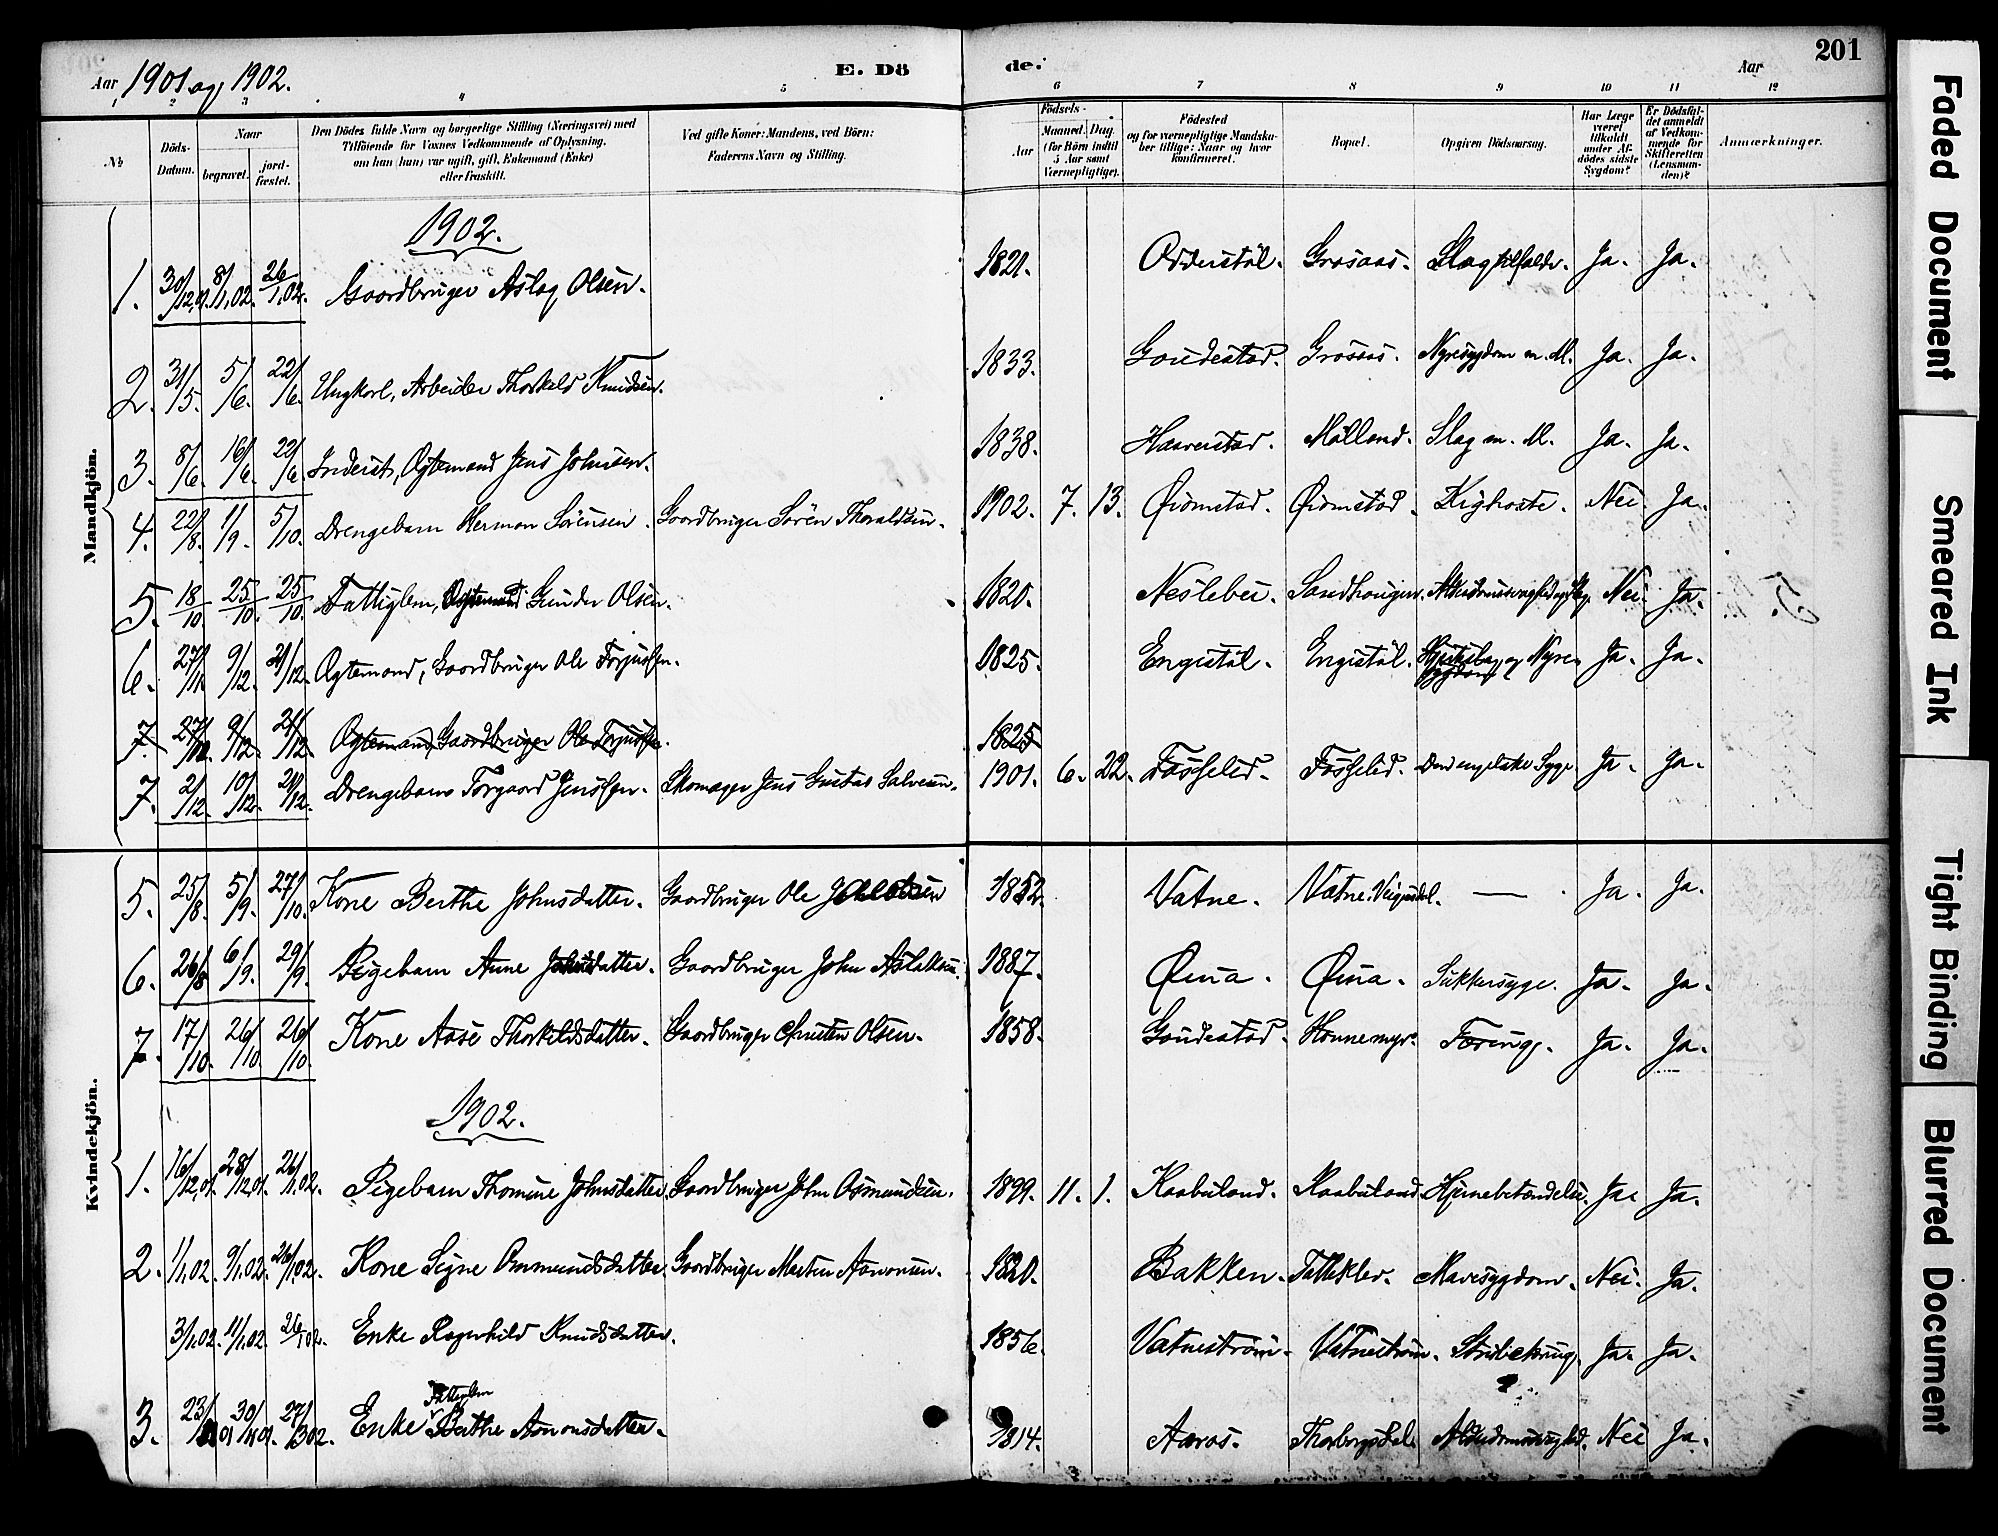 Aar 1901 og 1902. E. Dö de. Aar 201
1 2 3 4 5 6 7 8 9 10 11 12
№ Döds-Datum. Naar begravet. jord-fæstet. Den Dödes fulde Navn og borgerlige Stilling (Næringsvei) med Tilföiende for Voxnes Vedkommende af Oplysning, om han (hun) var ugift, gift, Enkemand (Enke) eller fraskilt. Ved gifte Koner: Mandens, ved Börn: Faderens Navn og Stilling. Födsels- Aar Maaned. Dag. (for Börn indtil 5 Aar samt Værnepligtige). Födested og for værnepligtige Mandskaber tillige: Naar og hvor konfirmeret. Bopæl. Opgiven Dödsaarsag. Har Læge været tilkaldt under Afdödes sidste Sygdom? Er Dödsfaldet anmeldt af Vedkommende for Skifteretten (Lensmanden)? Anmærkninger.
Mandkjön.
1902.
1. 30/12,01. 8/1,02. 26/1,02. Gaardbruger Aslag Olsen. 1821. Odderstöl. Grosaas. Slagtilfælde. Ja. Ja.
2. 31/5. 5/6. 22/6. Ungkarl, Arbeider Thorkeld Knudsen. 1833. Goudestad. Grosaas. Nyresygdom m. M. Ja. Ja.
3. 8/6. 16/6. 22/6. Inderst, Ægtemand Jens Johnsen. 1838. Haaverstad. Mölland. Slag m. M. Ja. Ja.
4. 22/8. 1/9. 5/10. Drengebarn Herman Sörensen. Gaardbruger Sören Thoraldsen. 1902. 7. 13. Öiomstad. Öiomstad. Kighoste. Nei. Ja.
5. 18/10 25/10. 25/10. Fattiglem, Ægtemand Gunder Olsen. 1820. Neslebei. Sandhougen. Nei. Ja.
6. 27/11. 9/12. 21/12. Ægtemand, Gaardbruger Ole Torjussen. 1825. Engistöl. Engistöl. og Nyre Sygdom Ja. Ja.
7. 27/11. 9/12. 21/12. Ægtemand, Gaardbruger Ole Torjussen. 1825
7. 2/12. 10/12. 21/12. Drengebarn Torgaard Jenssen. Skomager Jens Gustav Salvesen. 1901. 6. 22. Fosselid. Fosselid. Den engelske Syge Ja. Ja.
Kvindekjön.
5. 25/8. 5/9. 27/10. Kone Berthe Johnsdatter. Gaardbruger Ole Jacobsen 1852. Vatne. Vatne. Veigusdal. — Ja. Ja.
6. 26/8 6/9. 29/9. Pigebarn Anne Johnsdatter. Gaardbruger John Aslaksen. 1887. Öina. Öina. Sukkersyge. Ja. Ja.
7. 17/10. 26/10. 26/10. Kone Aase Thorkildsdatter. Gaardbruger Christen Olsen. 1858. Goudestad. Honnemyr. Tæring. Ja. Ja.
1902.
1. 16/12,01. 28/12,01. 26/1,02. Pigebarn Thomine Johnsdatter. Gaardbruger John Osmundsen. 1899. 11. 1. Kaabuland. Kaabuland Hjernebetændelse. Ja. Ja.
2. 1/1,02. 9/1,02. 26/1,02. Kone Signe Aanmundsdatter. Gaardbruger Martin Aanonsen. 1820. Bakken. Tatteklev. Mavesygdom. Nei. Ja.
3/1,02. 11/1,02. 26/1,02. Enke Ragnhild Knudsdatter. 1856. Vatneström. Vatneström. Ja. Ja.
3. 23/ 01 30/ 01. 27/3 02. Enke Fattiglem Berthe Aanonsdatter. 1814. Aaros. Thorborgsdal Alderdomssvaghed. Nei Ja.
Faded Document
Smeared Ink
Tight Binding
Blurred Document